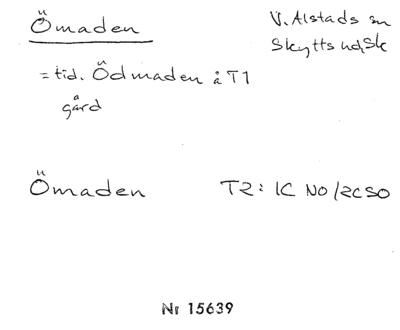 Ömaden
V. Alstads sn
Skytts hd, Sk
= tid. Ödmaden å T1
gård
Ömaden
T2: 1C NO/2CSO
Nr 15639